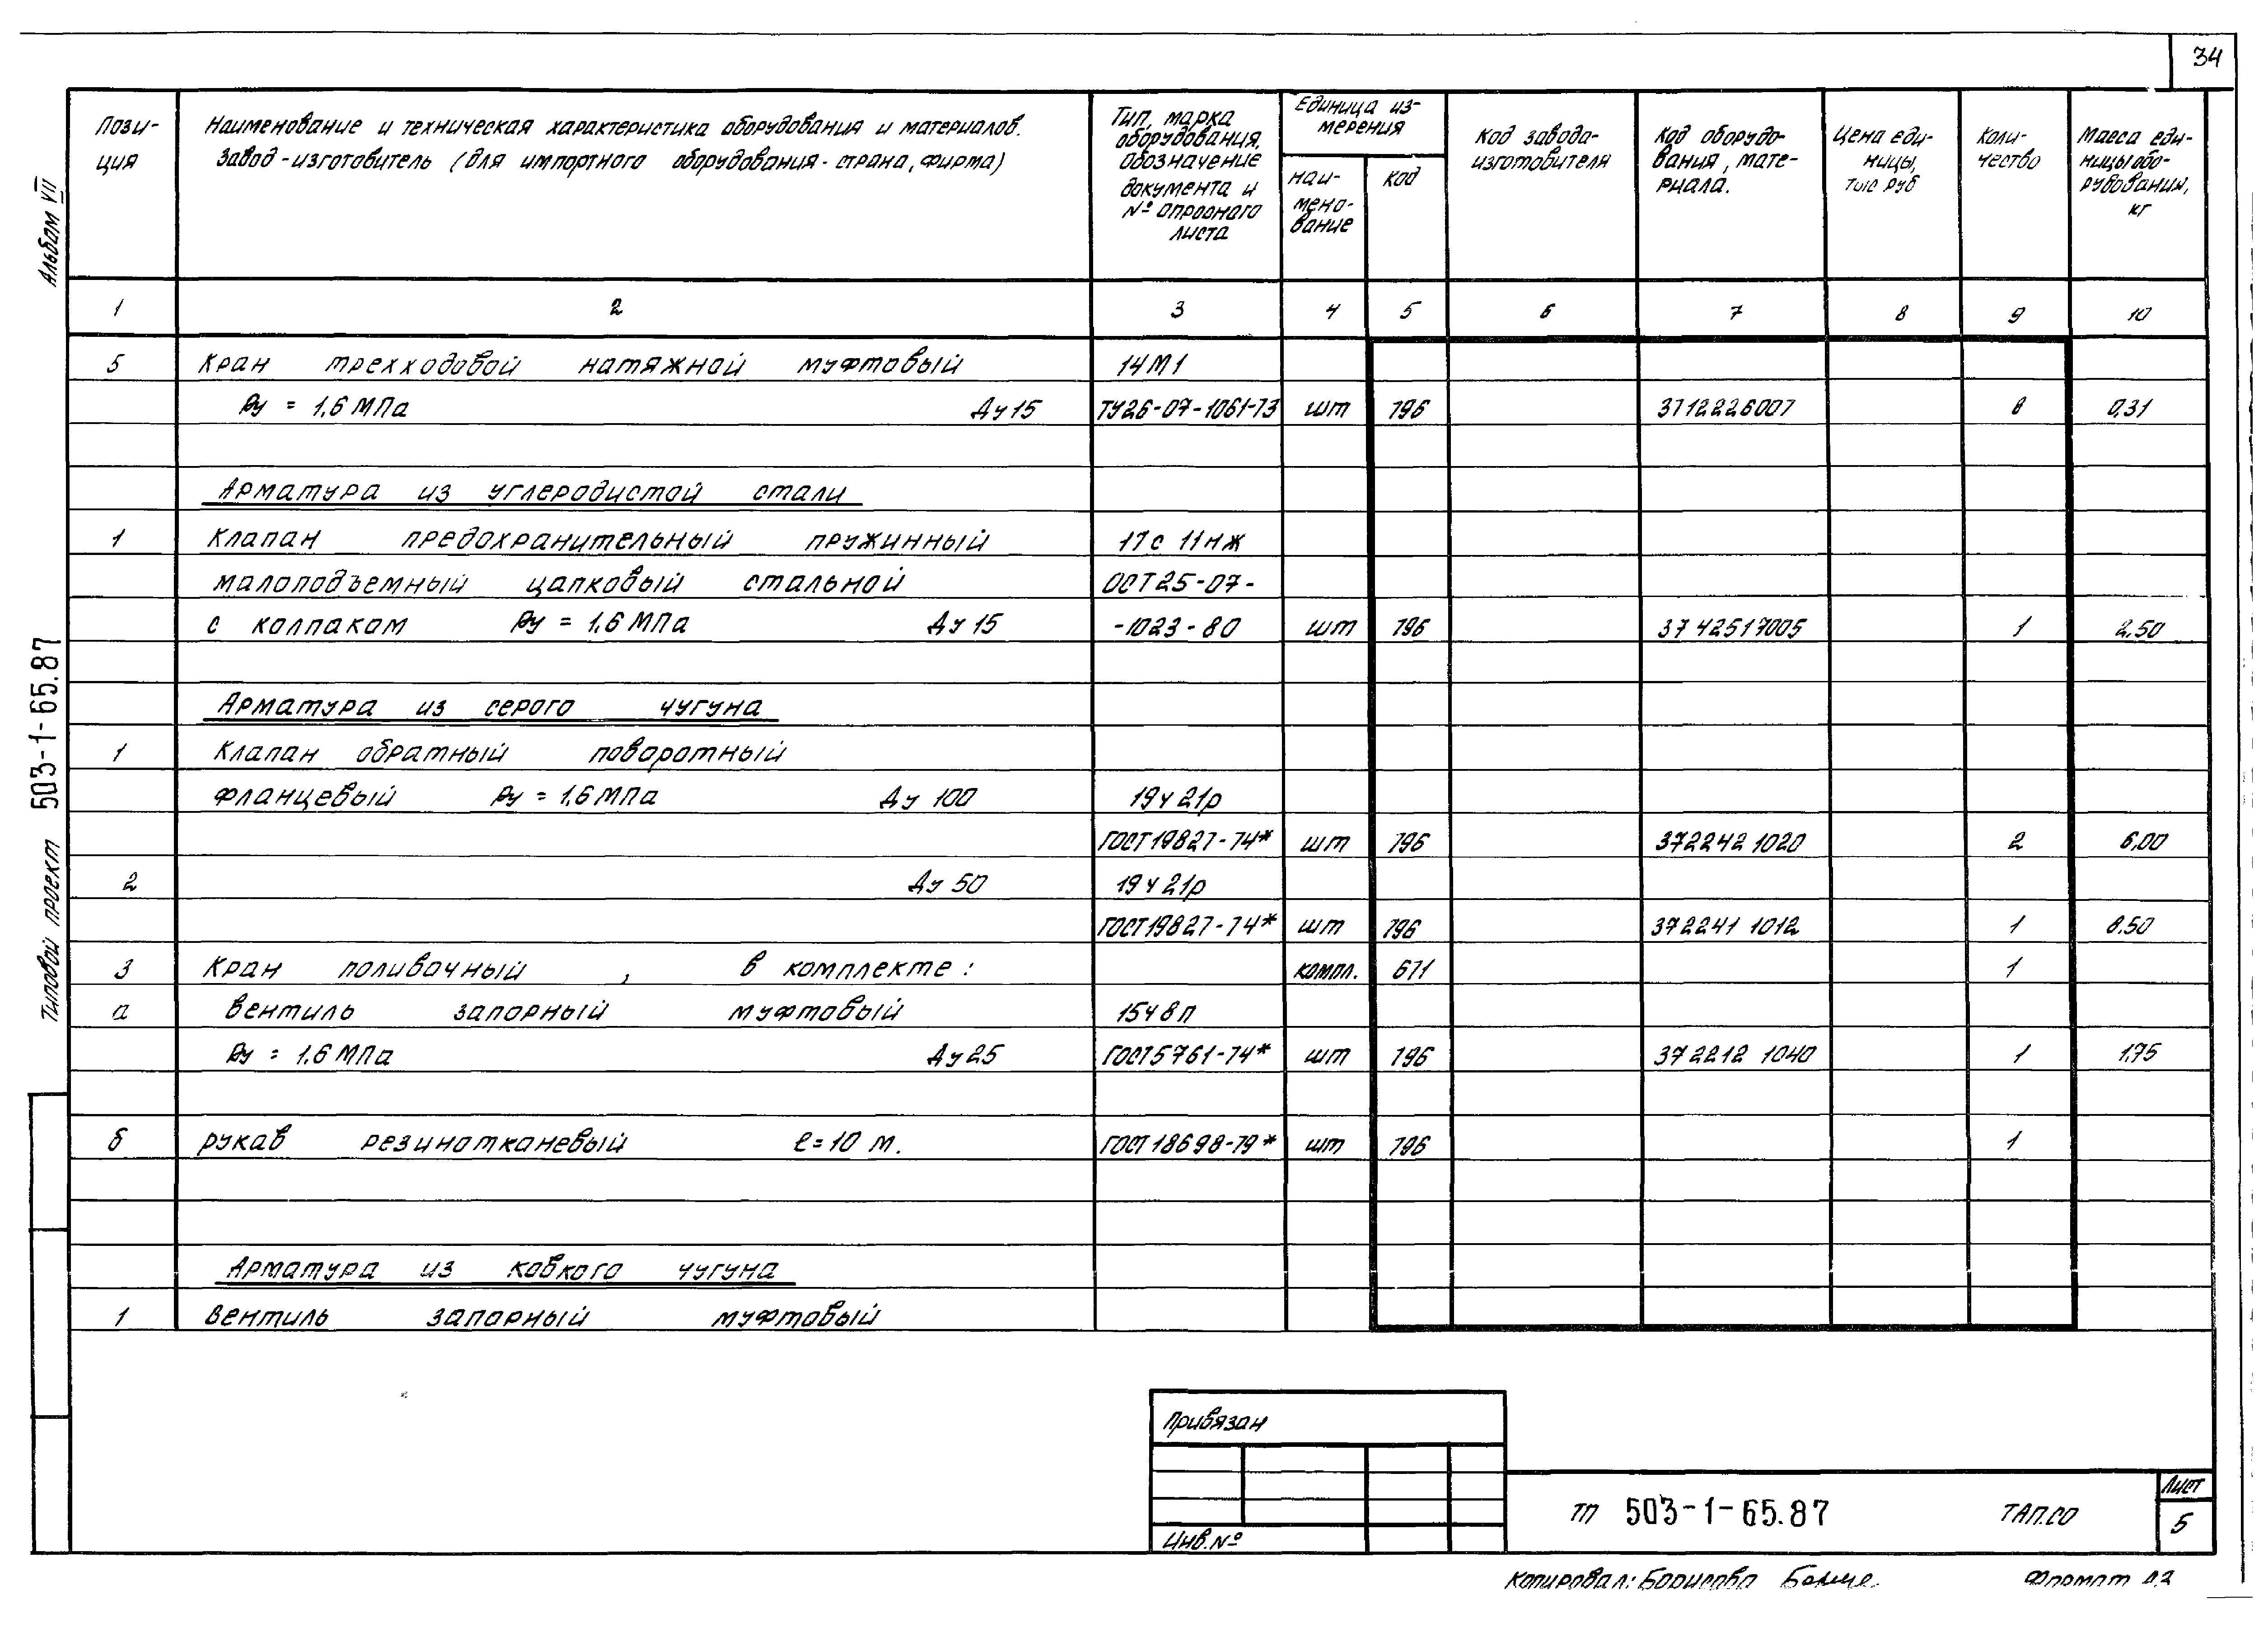 34
Альбом VII
Типовой проект 503-1-65.87
Пози-
ция
Наименование и техническая характеристика оборудования и материалов.
Завод-изготовитель (для импортного оборудования-страна, фирма)
Тип, марка
оборудования,
обозначение
документа и
№ опросного
листа
Единица из-
мерения
наи-
мено-
вание
код
Код завода-
изготовителя
Код оборудо-
вания, мате-
риала.
Цена еди-
ницы,
тыс руб
Коли-
чество
Масса еди-
ницы обо-
рудования,
кг
1 2 3 4 5 6 7 8 9 10
5 Кран трехходовой натяжной муфтовый 14М1
Ру = 1,6 МПа Ду 15 ТУ26-07-1061-73 шт 796 3712226007 8 0,31
Арматура из углеродистой стали
1 Клапан предохранительный пружинный 17с 11нж
малоподъемный цапковый стальной ОСТ 25-07-
с колпаком Ру = 1,6 МПа Ду 15 -1023-80 шт 796 37 42517005 1 2,50
Арматура из серого чугуна
1 Клапан обратный поворотный
фланцевый Ру = 1,6 МПа Ду 100 19ч21р
ГОСТ 19827-74* шт 796 372242 1020 2 6,00
2 Ду 50 19ч21р
ГОСТ 19827-74* шт 796 372241 1012 1 8,50
3 Кран поливочный , в комплекте: компл. 671 1
а вентиль запорный муфтовый 15ч8п
Ру = 1,6 МПа Ду 25 ГОСТ 5761-74* шт 796 372212 1040 1 1,75
б рукав резинотканевый ℓ=10 м. ГОСТ 18698-79* шт 796 1
Арматура из ковкого чугуна
1 Вентиль запорный муфтовый
Привязан
Инв.№
ТП 503-1-65.87 ТАП.СО
Лист
5
Копировал: Борисова Формат А2